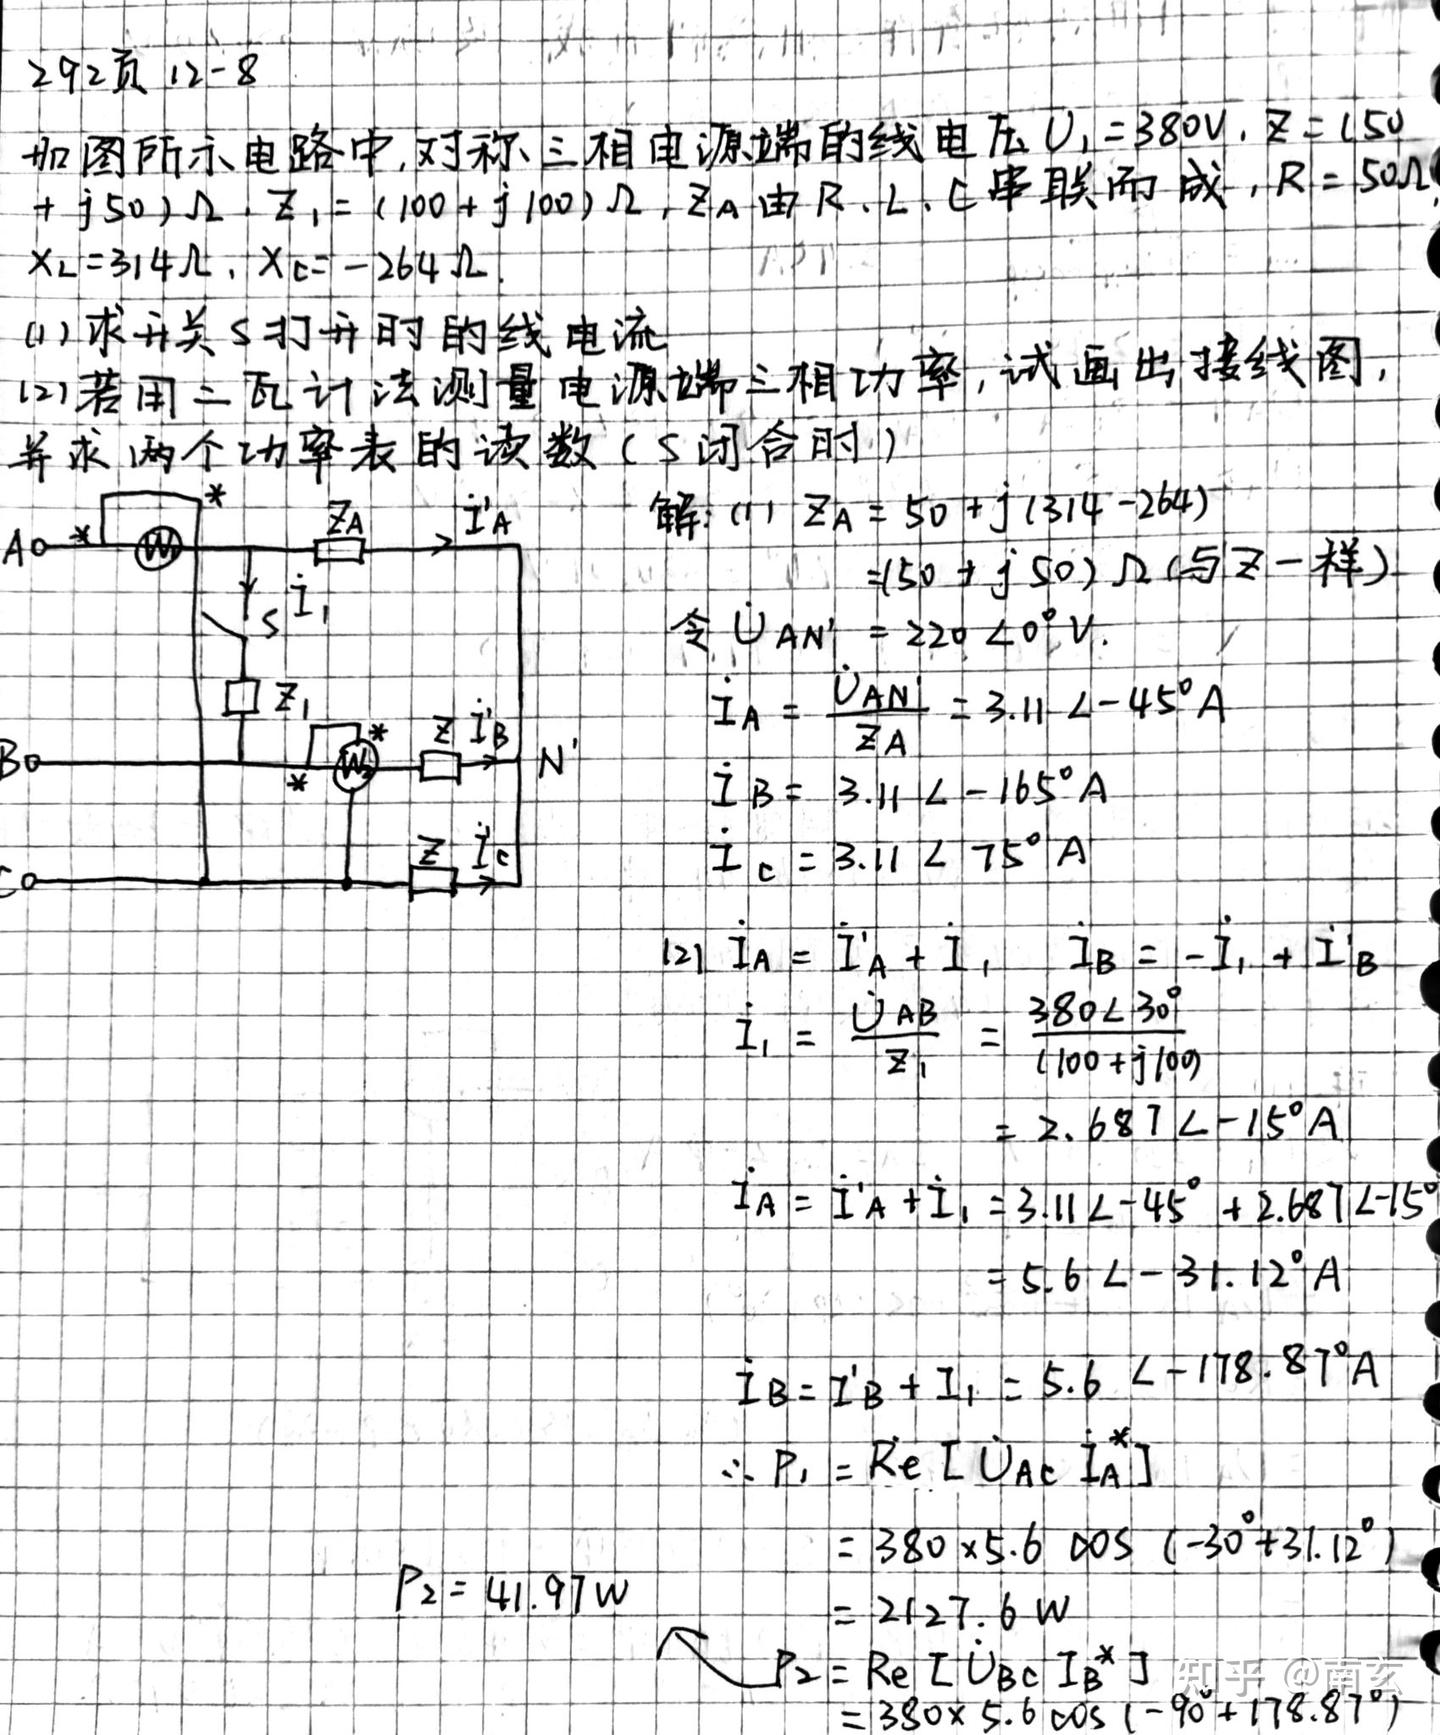 292页 12-8
如图所示电路中,对称三相电源端的线电压U₁=380V,Z=(50
+j50)Ω,Z₁=(100+j100)Ω,ZA由R、L、C串联而成,R=50Ω,
XL=314Ω,XC=-264Ω.
(1)求开关S打开时的线电流
(2)若用二瓦计法测量电源端三相功率,试画出接线图,
并求两个功率表的读数(S闭合时)
A
*
*
W₁
ZA
İ'A
S
İ₁
Z₁
B
*
*
W₂
Z
İ'B
N'
C
Z
İC
解:(1) ZA=50+j(314-264)
=(50+j50)Ω(与Z一样)
令U̇AN'=220∠0°V.
İA=U̇AN'/ZA=3.11∠-45°A
İB=3.11∠-165°A
İC=3.11∠75°A
(2) İA=İ'A+İ₁ İB=-İ₁+İ'B
İ₁=U̇AB/Z₁=380∠30°/(100+j100)
=2.687∠-15°A
İA=İ'A+İ₁=3.11∠-45°+2.687∠-15°
=5.6∠-31.12°A
İB=I'B+I₁=5.6∠-178.87°A
∴P₁=Re[U̇AC İA*]
=380×5.6cos(-30°+31.12°)
=2127.6W
P₂=Re[U̇BC IB*]
=380×5.6cos(-90°+178.87°)
P₂=41.97W
知乎 @南玄